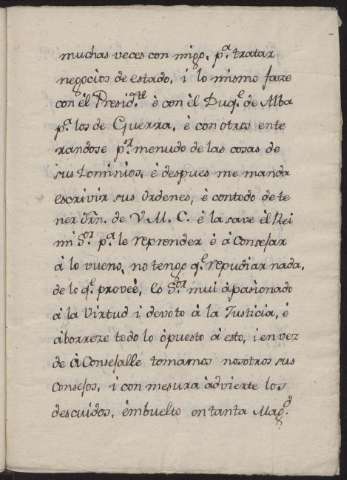 muchas veces con migo, p.ª tratar
negocios de estado, i lo mismo faze
con èl Presid.te è con èl Duq.e de Alba
p.ª los de Guerra, è con otros ente
randose p.r menudo de las cosas de
sus Dominios, è despues me manda
escrivir sus òrdenes, è contodo de te
ner òrn. de V. M. C. è la save èl Rei
mi S.or p.ª le reprender è à Consejar
à lo vueno, no tengo q.e repudiar nada,
de lo q.e proveè, Es S.or mui àpasionado
à la Virtud i devoto à la Justicia, è
àborreze todo lo òpuesto à esto, i en vez
de à Consejalle tomamos nosotros sus
Consejos, i con mesura àdvierte los
descuidos, èmbuelto en tanta Mag.d